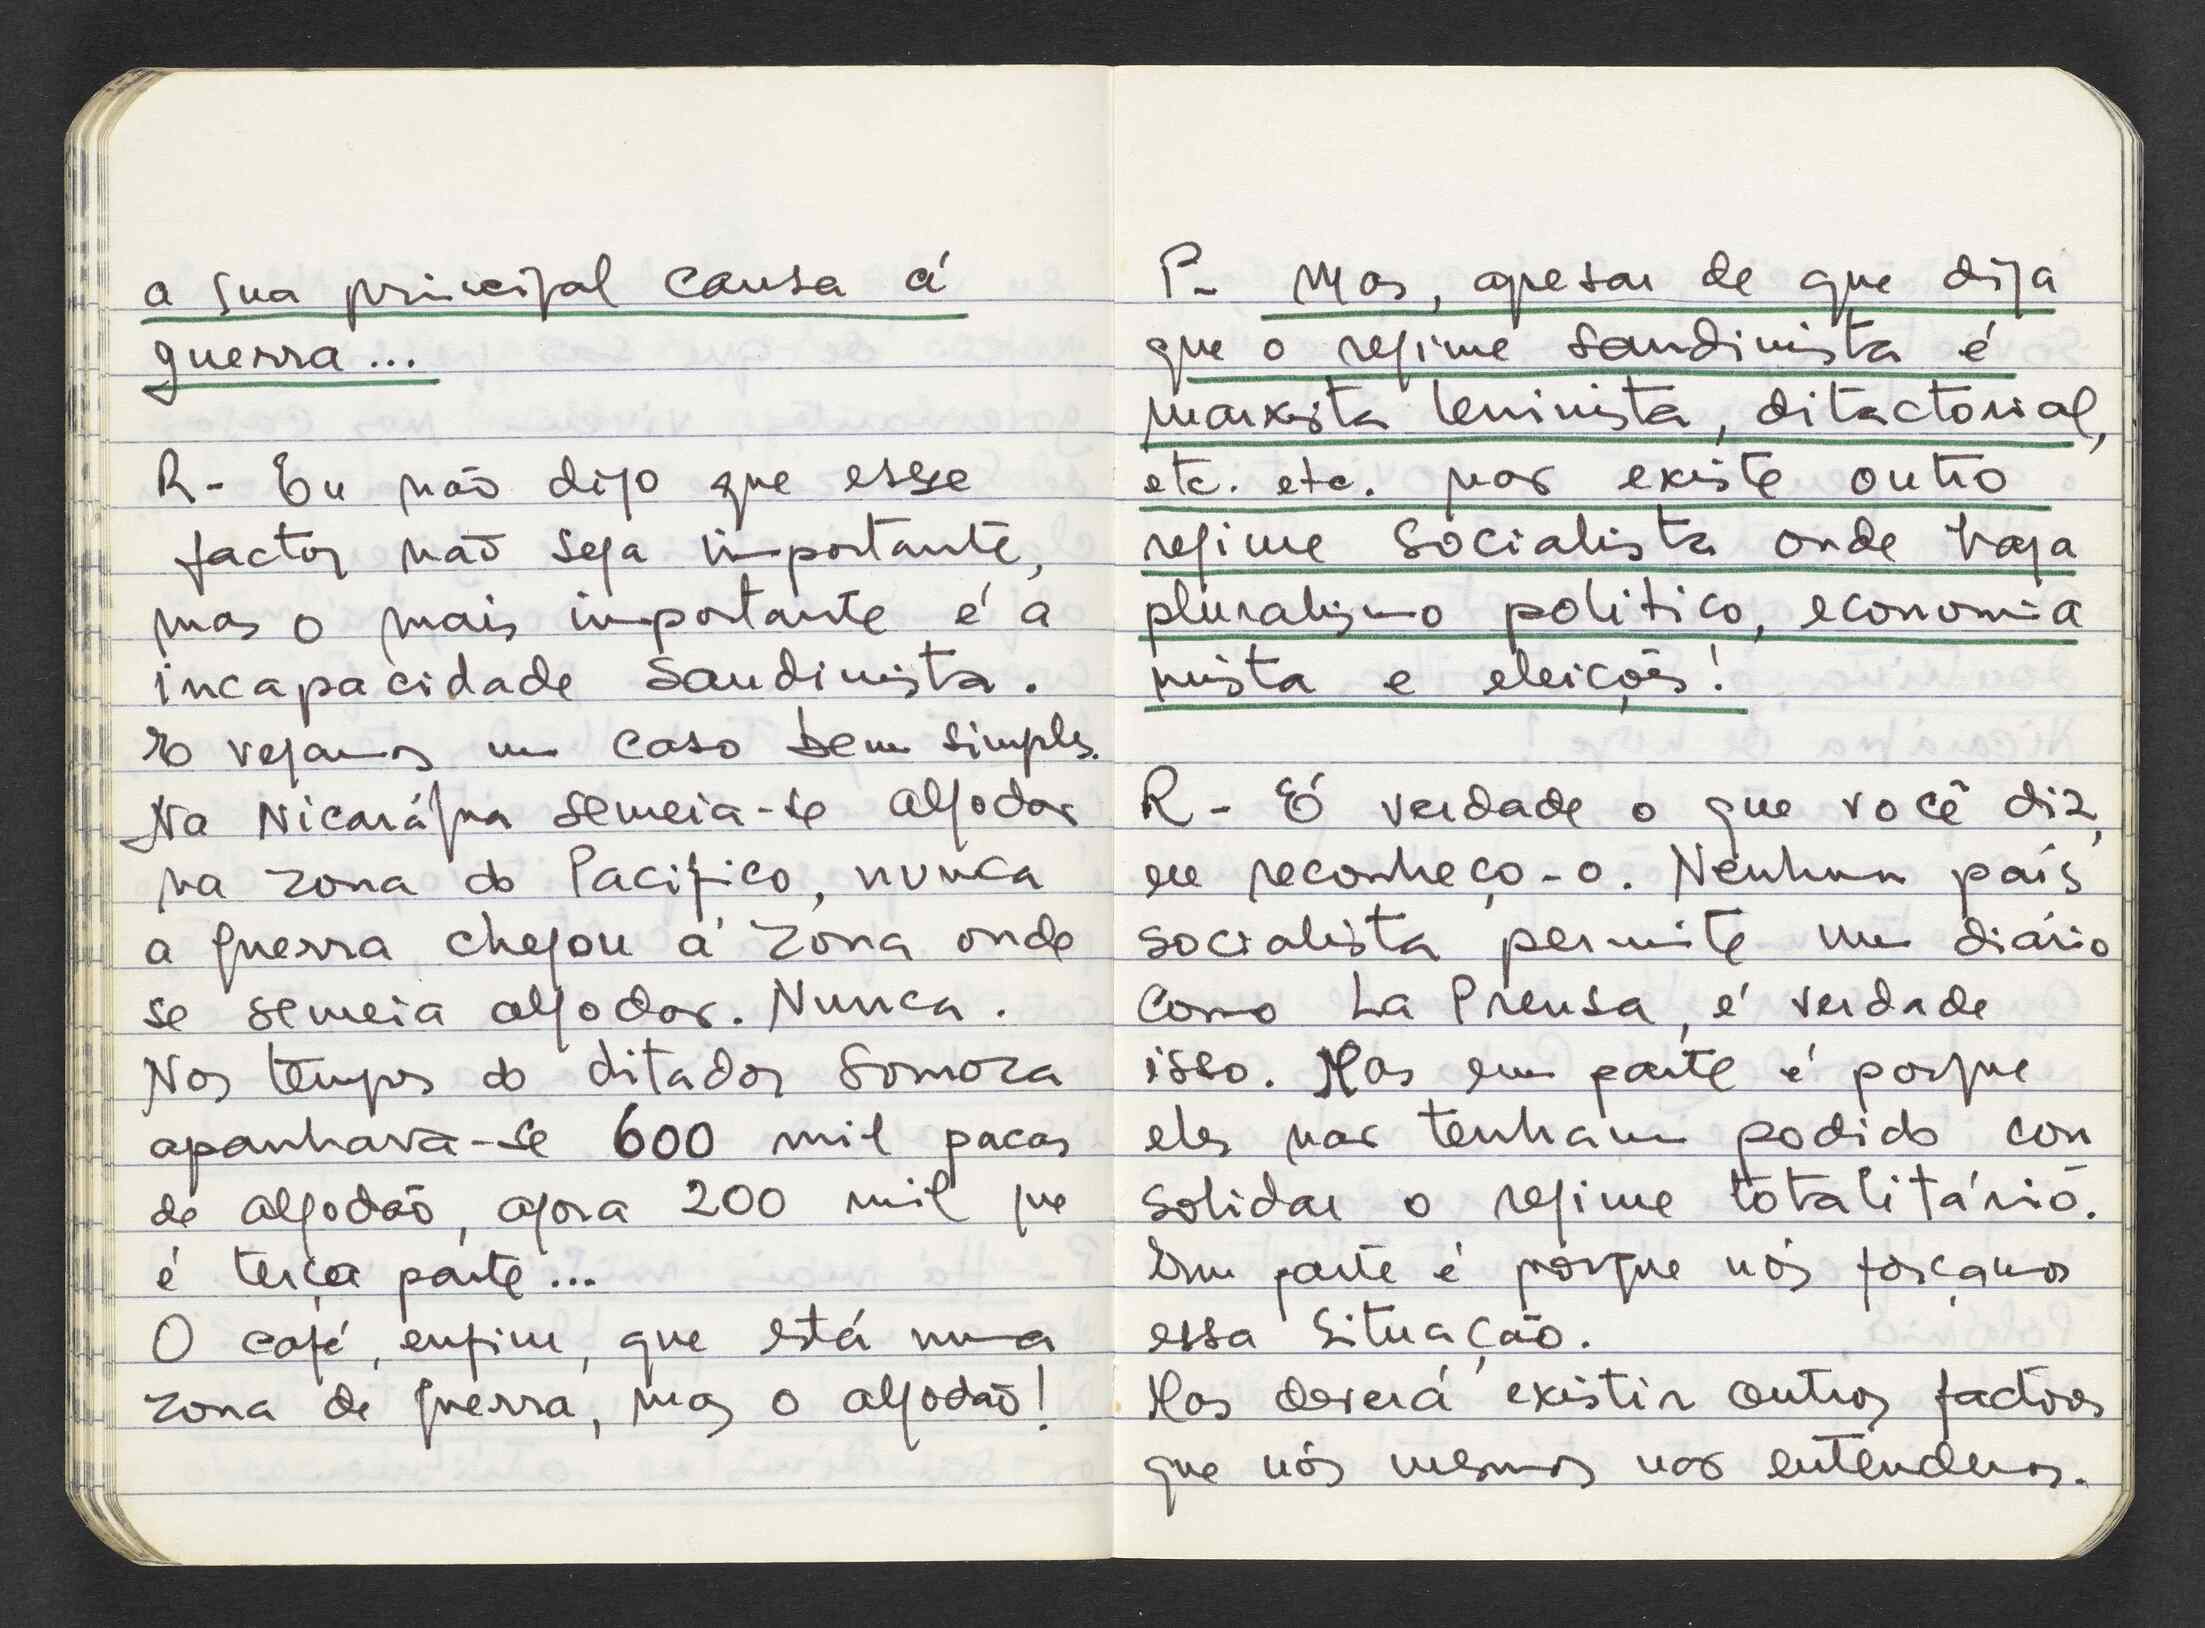 a sua principal causa á
guerra...
R- Eu não digo que esse
factor não seja importante,
mas o mais importante é a
incapacidade sandinista.
E vejamos um caso bem simples.
Na Nicarágua semeia-se algodão
na zona do Pacifico, nunca
a guerra chegou á zona onde
se semeia algodão. Nunca.
Nos tempos do ditador Somoza
apanhava-se 600 mil pacas
de algodão, agora 200 mil que
é terça parte...
O café, enfim, que está numa
zona de guerra, mas o algodão!
P- Mas, apesar de que diga
que o regime sandinista é
marxista leninista, ditactorial,
etc. etc. não existe outro
regime socialista onde haja
pluralismo politico, economia
mista e eleições!
R- É verdade o que você diz,
eu reconheço-o. Nenhum país
socialista permite um diário
como La Prensa, é verdade
isso. Mas em parte é porque
eles não tenham podido con
solidar o regime totalitário.
Em parte é porque nós forçamos
essa situação.
Mas deverá existir outros factores
que nós mesmos não entendemos.